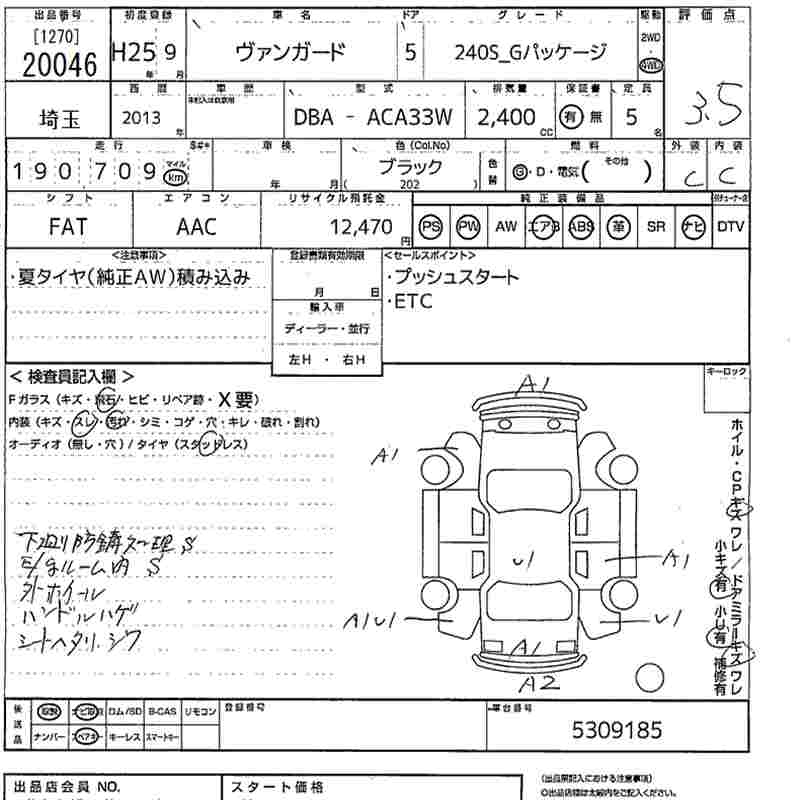 出品番号 初度登録 車名 ドア グレード 駆動 評価点
[1270] 20046 H25年 9月 ヴァンガード 5 240S_Gパッケージ 2WD・4WD 3.5
西暦 車歴 型式 排気量 保証書 定員
埼玉 2013年 DBA - ACA33W 2,400CC 有 無 5名
走行 S#* 車検 色(Col.No) 燃料 外装 内装
190,709 マイル km 年 月 ブラック (202) 色替 G・D・電気 (その他) C C
シフト エアコン リサイクル預託金 純正装備品
FAT AAC 12,470円 PS PW AW エアB ABS 革 SR ナビ DTV
<注意事項> 登録書類有効期限 <セールスポイント>
・夏タイヤ(純正AW)積み込み 月 日 ・プッシュスタート
輸入車 ・ETC
ディーラー・並行
左H ・ 右H
< 検査員記入欄 > キーロック
Fガラス (キズ・飛石・ヒビ・リペア跡・X要)
内装 (キズ・スレ・汚れ・シミ・コゲ・穴・キレ・破れ・割れ)
オーディオ (無し・穴) / タイヤ (スタッドレス)
A1
A1
下廻り防錆処理 S
ルーム内 S
U1
A1
外ホイール
ハンドルハゲ
A1U1
U1
シートヘタリ.シワ
A1
A2
ホイル・CPキズ ワレ / ドアミラーキズ ワレ
小キズ有 小U有 補修有
後送品 取説 ナビ取説 ロム/SD B-CAS リモコン 登録番号 車台番号
ナンバー スペアキー キーレス スマートキー 5309185
出品店会員 NO. スタート価格 (出品票記入における注意事項)
○出品店様は太線内をご記入ください。